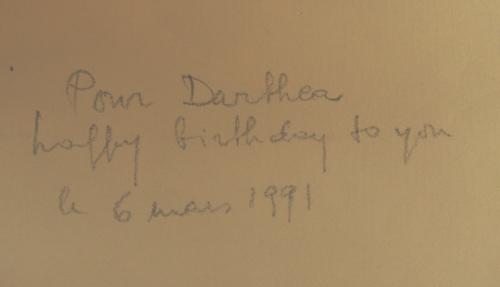 Pour Darthea
happy birthday to you
le 6 mars 1991